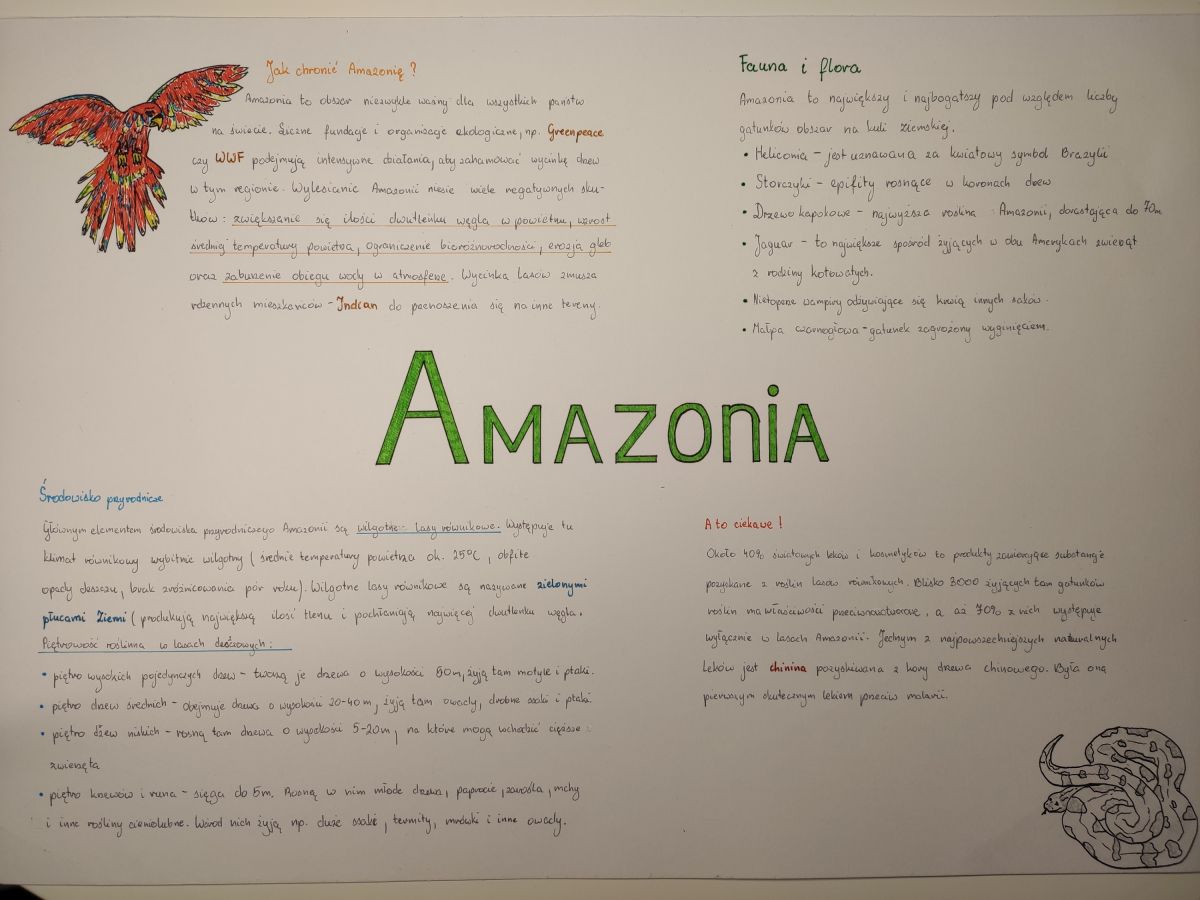 Jak chronić Amazonię ?
Amazonia to obszar niezwykle ważny dla wszystkich państw
na świecie. Liczne fundacje i organizacje ekologiczne, np. Greenpeace
czy WWF podejmują intensywne działania, aby zahamować wycinkę drzew
w tym regionie. Wylesianie Amazonii niesie wiele negatywnych sku-
tków: zwiększanie się ilości dwutlenku węgla w powietrzu, wzrost
średniej temperatury powietrza, ograniczenie bioróżnorodności, erozja gleb
oraz zaburzenie obiegu wody w atmosferze. Wycinka lasów zmusza
rdzennych mieszkańców - Indian do przenoszenia się na inne tereny.
Fauna i flora
Amazonia to największy i najbogatszy pod względem liczby
gatunków obszar na kuli ziemskiej.
• Heliconia - jest uznawana za kwiatowy symbol Brazylii
• Storczyki - epifity rosnące w koronach drzew
• Drzewo kapokowe - najwyższa roślina Amazonii, dorastająca do 70m
• Jaguar - to największe spośród żyjących w obu Amerykach zwierząt
z rodziny kotowatych.
• Nietoperze wampiry odżywiające się krwią innych ssaków.
• Małpa czarnogłowa - gatunek zagrożony wyginięciem.
AMAZONiA
Środowisko przyrodnicze
Głównym elementem środowiska przyrodniczego Amazonii są wilgotne lasy równikowe. Występuje tu
klimat równikowy wybitnie wilgotny ( średnie temperatury powietrza ok. 25°C , obfite
opady deszczu, brak zróżnicowania pór roku). Wilgotne lasy równikowe są nazywane zielonymi
płucami Ziemi ( produkują największą ilość tlenu i pochłaniają najwięcej dwutlenku węgla.
Piętrowość roślinna w lasach deszczowych:
• piętro wysokich pojedynczych drzew - tworzą je drzewa o wysokości 50m, żyją tam motyle i ptaki.
• piętro drzew średnich - obejmuje drzewa o wysokości 20-40 m, żyją tam owady, drobne ssaki i ptaki.
• piętro drzew niskich - rosną tam drzewa o wysokości 5-20m, na które mogą wchodzić cięższe
zwierzęta
• piętro krzewów i runa - sięga do 5m. Rosną w nim młode drzewa, paprocie, zarośla, mchy
i inne rośliny cieniolubne. Wśród nich żyją np. duże ssaki, termity, mrówki i inne owady.
A to ciekawe !
Około 40% światowych leków i kosmetyków to produkty zawierające substancje
pozyskane z roślin lasów równikowych. Blisko 3000 żyjących tam gatunków
roślin ma właściwości przeciwnowotworowe, a aż 70% z nich występuje
wyłącznie w lasach Amazonii. Jednym z najpowszechniejszych naturalnych
leków jest chinina pozyskiwana z kory drzewa chinowego. Była ona
pierwszym skutecznym lekiem przeciw malarii.